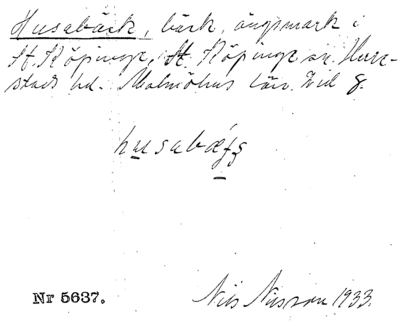 Husabäck, bäck, ängsmark i
St. Köpinge, St. Köpinge sn. Herre-
stads hd. Malmöhus län.
husabæʃʃ
Nr 5637. Nils Nilsson 1933.